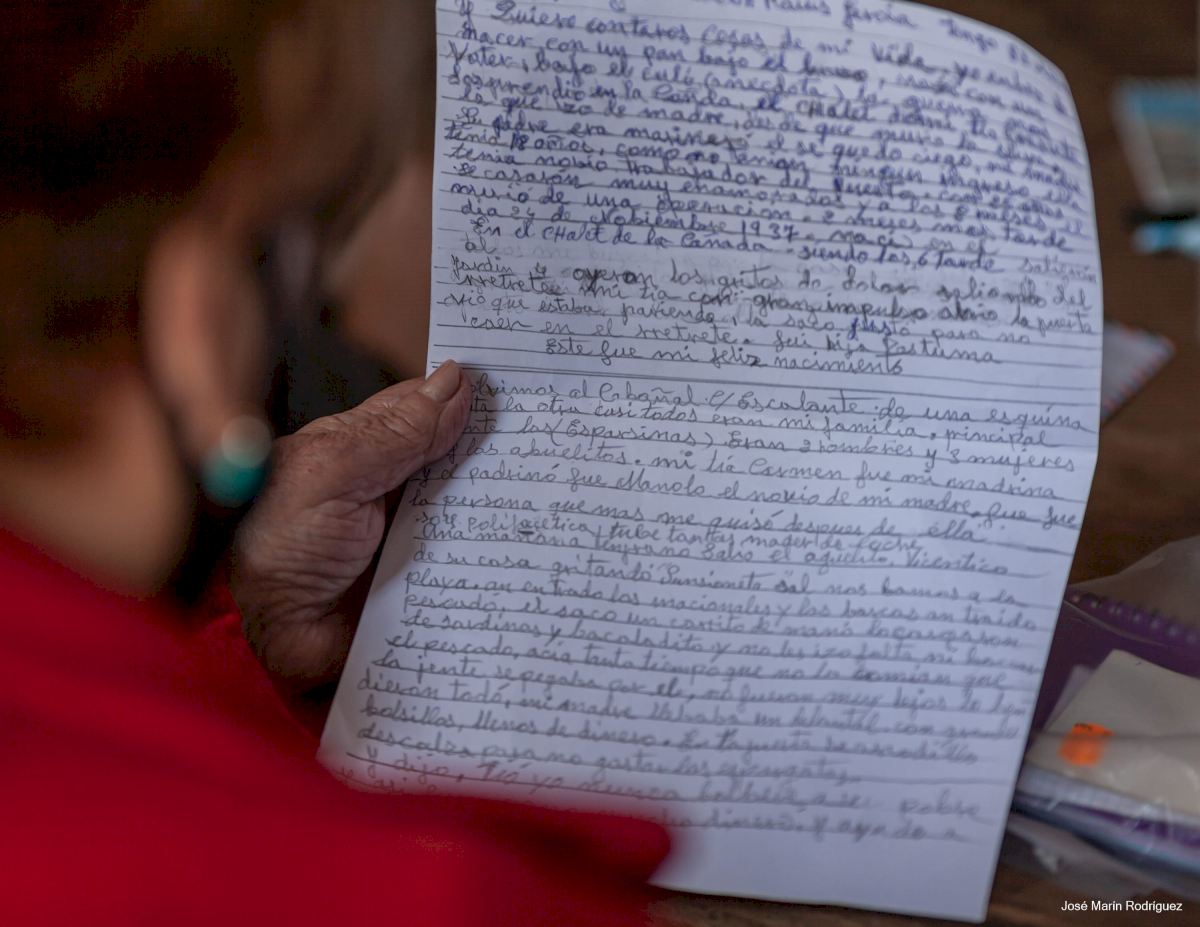 Ramis García Tengo 82 años
y Quiero contaros cosas de mi vida, yo entre a
nacer con un pan bajo el brazo, nací con un
Vater, bajo el culo (anecdota) la guerra nos
sorprendio en la Cañda, el CHalet de mi tía
la que izo de madre, desde que murio la
Su padre era marinero el se quedo ciego, mi madre
tenia 18 años, como no tenian ningun ingreso, ella
tenia novio trabajador del Puerto, con el
se casaron muy enamorados y a los 8 meses, el
murió de una operacion. 2 meses mas tarde
dia 24 de Nobiembre 1937. naci en el
En el CHalet de la Cañada. siendo las 6 tarde salieron
al
Jardin y oyeron los gritos de dolor saliendo del
rretrete, mi tía con gran impulso abrio la puerta
vio que estaba pariendo, la saco justo para no
caer en el rretrete. fui hija Postuma
Este fue mi feliz nacimiento
olvimos al Cabañal C/ Escalante. de una esquina
la otra casi todos eran mi familia, principal
nte los (Esparsinas) Eran 2 hombres y 3 mujeres
y los abuelitos. mi tía Carmen fue mi madrina
y padrinó fue Manolo el novio de mi madre, que fue
la persona que mas me quisó despues de élla
sore polifacetica, tube tantas madres de leche
Una mañana tenprano salio el aguelito, Vicentico
de su casa gritando Sunsioneta sal nos bamos a la
playa, an entrado los nacionales y las barcas an traido
pescado, el saco un carrito de mano lo cargaron
de sardinas y bacaladito y no les izo falta, ni
el pescado, acía tanto tiempo que no lo comian que
la jente se pegaba por el, no fueron muy lejos lo
dieron todo, mi madre llebaba un delantal con grandes
bolsillos, llenos de dinero. En
descalza para no gastar las
y dijo, yo nunca bolbere a ser pobre
dinero, y ayudo a
José Marín Rodríguez